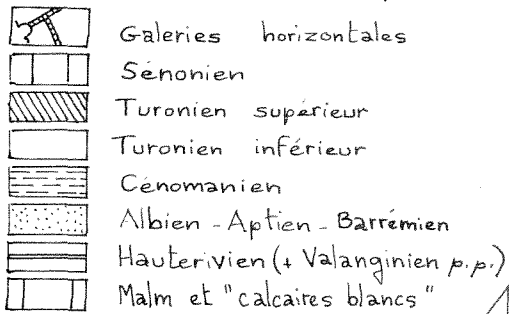 Galeries horizontales
Sénonien
Turonien supérieur
Turonien inférieur
Cénomanien
Albien - Aptien - Barrémien
Hauterivien (+ Valanginien p.p.)
Malm et "calcaires blancs"